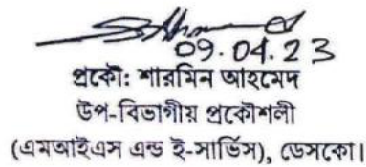 09.04.23
প্রকৌ: শারমিন আহমেদ
উপ-বিভাগীয় প্রকৌশলী
(এমআইএস এন্ড ই-সার্ভিস), ডেসকো।